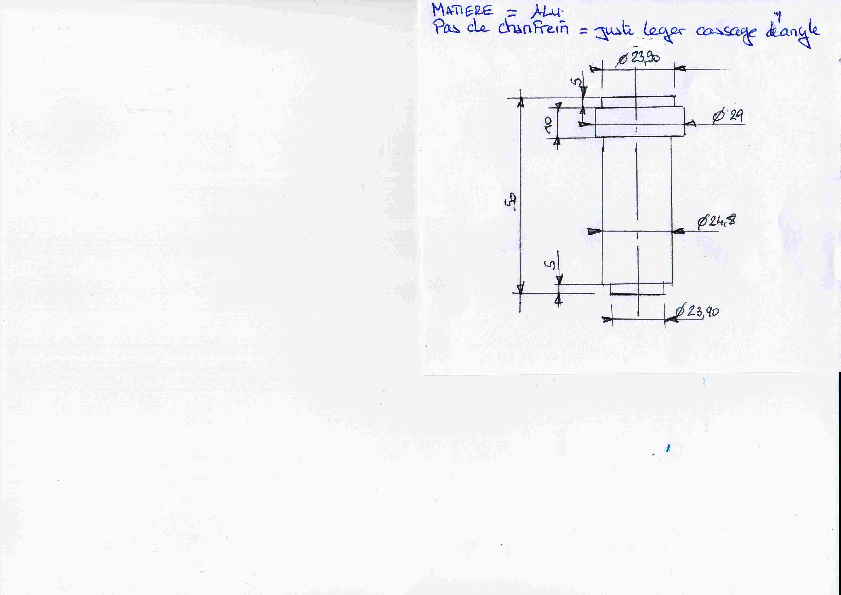 MATIERE = ALU.
Pas de chanfrein = juste leger cassage d'angle
Ø 23,90
5
10
Ø 29
50
Ø 24,8
5
Ø 23,90